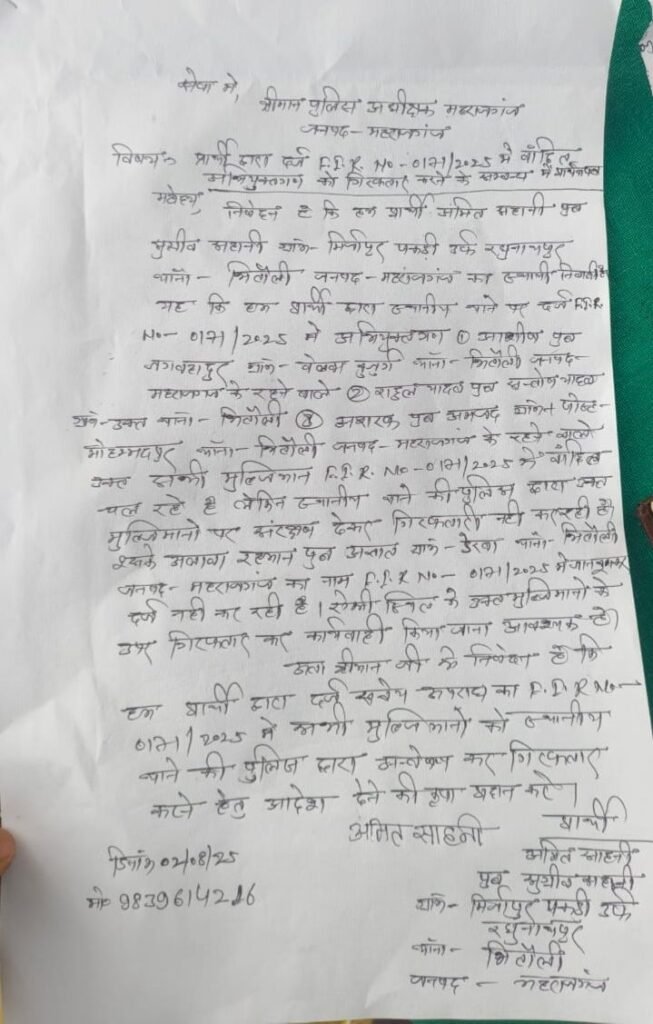 सेवा मे,
श्रीमान पुलिस अधीक्षक महराजगंज
जनपद- महराजगंज
विषय:- प्रार्थी द्वारा दर्ज F.I.R. No - 0171/2025 मे वांछित
अभियुक्तगण को गिरफ्तार करने के सम्बन्ध में प्रार्थनापत्र
महोदय,
निवेदन है कि हम प्रार्थी अमित सहानी पुत्र
सुग्रीव सहानी ग्राम- मिर्जापुर पकडी उर्फ रघुनाथपुर
थाना- भिटौली जनपद- महराजगंज का स्थायी निवासी है
यह कि हम प्रार्थी द्वारा स्थानीय थाने पर दर्ज F.I.R.
No- 0171/2025 मे अभियुक्तगण ① आशीष पुत्र
जगबहादुर ग्राम- बुजुर्ग थाना- भिटौली जनपद-
महराजगंज के रहने वाले ② राहुल यादव पुत्र सन्तोष यादव
ग्राम- उक्त थाना- भिटौली ③ अशरफ पुत्र अमजद ग्राम पोस्ट-
मोहम्मदपुर थाना- भिटौली जनपद- महराजगंज के रहने वाले
उक्त सभी मुल्जिमान F.I.R. No- 0171/2025 मे वांछित
चल रहे है लेकिन स्थानीय थाने की पुलिस द्वारा उक्त
मुल्जिमानो पर संरक्षण देकर गिरफ्तारी नही कर रही है।
इसके अलावा रहमान पुत्र ग्राम- डेरवा थाना- भिटौली
जनपद- महराजगंज का नाम F.I.R No- 0171/2025 मे जानबुझकर
दर्ज नही कर रही है। ऐसी स्थिति के उक्त मुल्जिमानो के
उपर गिरफ्तार कर कार्यवाही किया जाना आवश्यक है।
अतः श्रीमान जी से निवेदन है कि
हम प्रार्थी द्वारा दर्ज अपराध का F.I.R No-
0171/2025 मे सभी मुल्जिमानो को स्थानीय
थाने की पुलिस द्वारा अन्वेषण कर गिरफ्तार
करने हेतु आदेश देने की कृपा प्रदान करे।
अमित साहनी
प्रार्थी
दिनांक 02/08/25
अमित सहानी
पुत्र सुग्रीव सहानी
मो० 9839614216
ग्राम- मिर्जापुर पकडी उर्फ
रघुनाथपुर
थाना- भिटौली
जनपद - महराजगंज